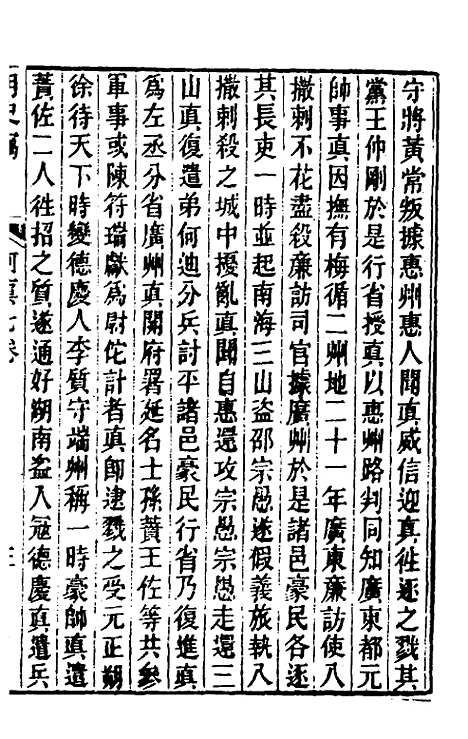 守將黃常叛據惠州惠人聞真威信迎真徃逐之戮其
黨王仲剛於是行省授真以惠州路判同知廣東都元
帥事真因撫有梅循二州地二十一年廣東廉訪使八
撒剌不花盡殺廉訪司官據廣州於是諸邑豪民各逐
其長吏一時並起南海三山盜邵宗愚遂假義旅執八
撒剌殺之城中擾亂真聞自惠還攻宗愚宗愚走還三
山真復遣弟何迪分兵討平諸邑豪民行省乃復進真
為左丞分省廣州真開府署延名士孫蕡王佐等共參
軍事或陳符瑞獻為尉佗計者真即逮戮之受元正朔
徐待天下時變德慶人李質守端州稱一時豪帥真遣
蕡佐二人徃招之質遂通好湖南盜入冦德慶真遣兵
何真七卷